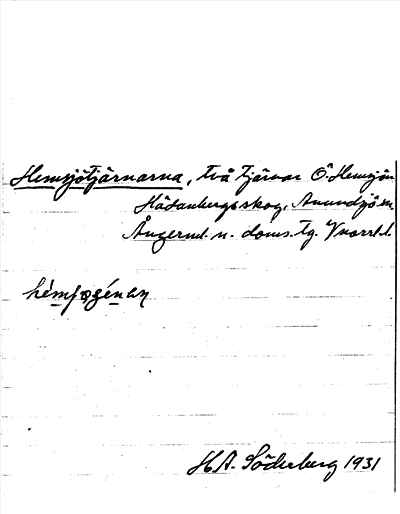 Hemsjötjärnarna, två tjärnar Ö. Hemsjön
Hädanbergsskog, Anundsjö sn
Ångerml. n. doms. tg. Vnorrl. l.
H.A. Söderberg 1931